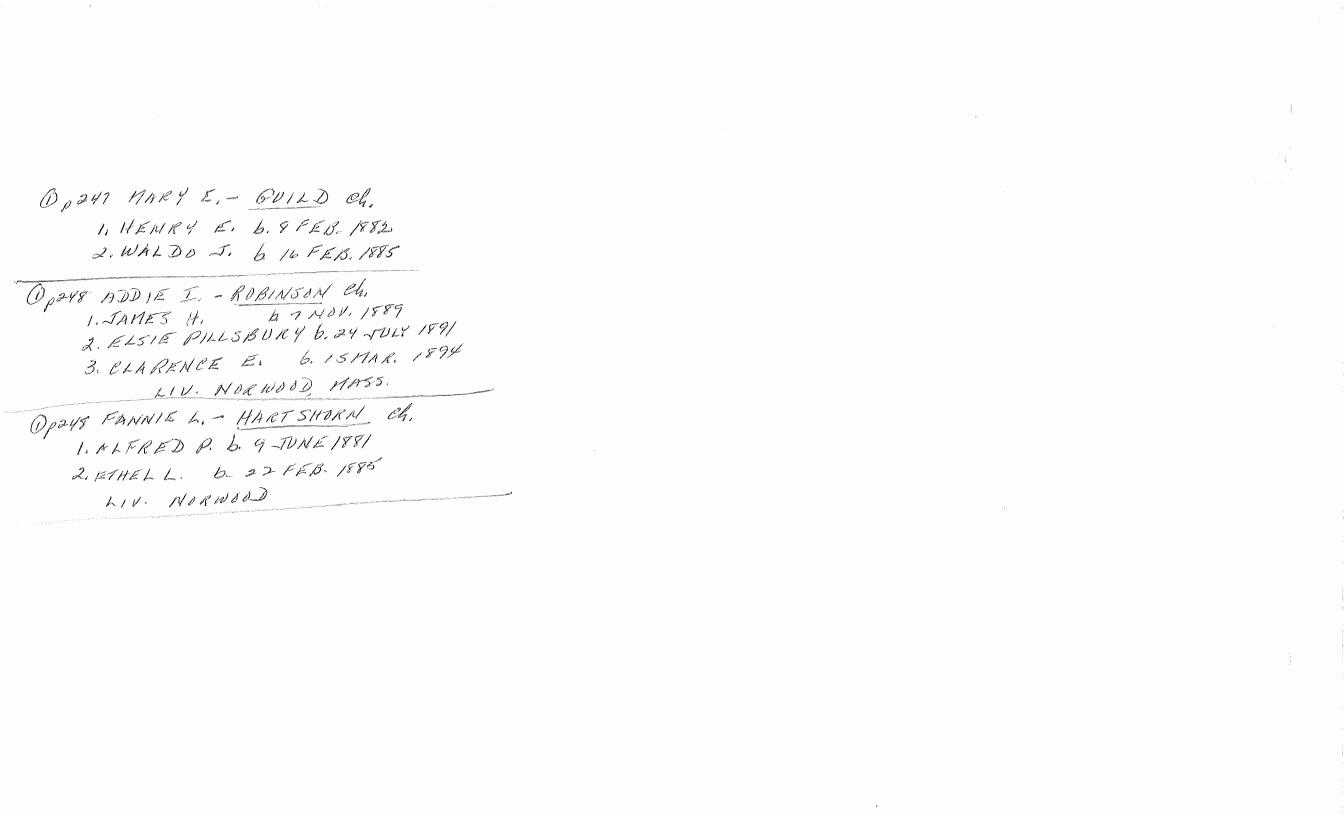 ① p247 MARY E. - GUILD ch.
1. HENRY E. b. 9 FEB. 1882
2. WALDO J. b 16 FEB. 1885
① p248 ADDIE I. - ROBINSON ch.
1. JAMES H. b 7 NOV. 1889
2. ELSIE PILLSBURY b. 24 JULY 1891
3. CLARENCE E. b. 15 MAR. 1894
LIV. NORWOOD, MASS.
① p248 FANNIE L. - HARTSHORN ch.
1. ALFRED P. b. 9 JUNE 1881
2. ETHEL L. b. 22 FEB. 1885
LIV. NORWOOD